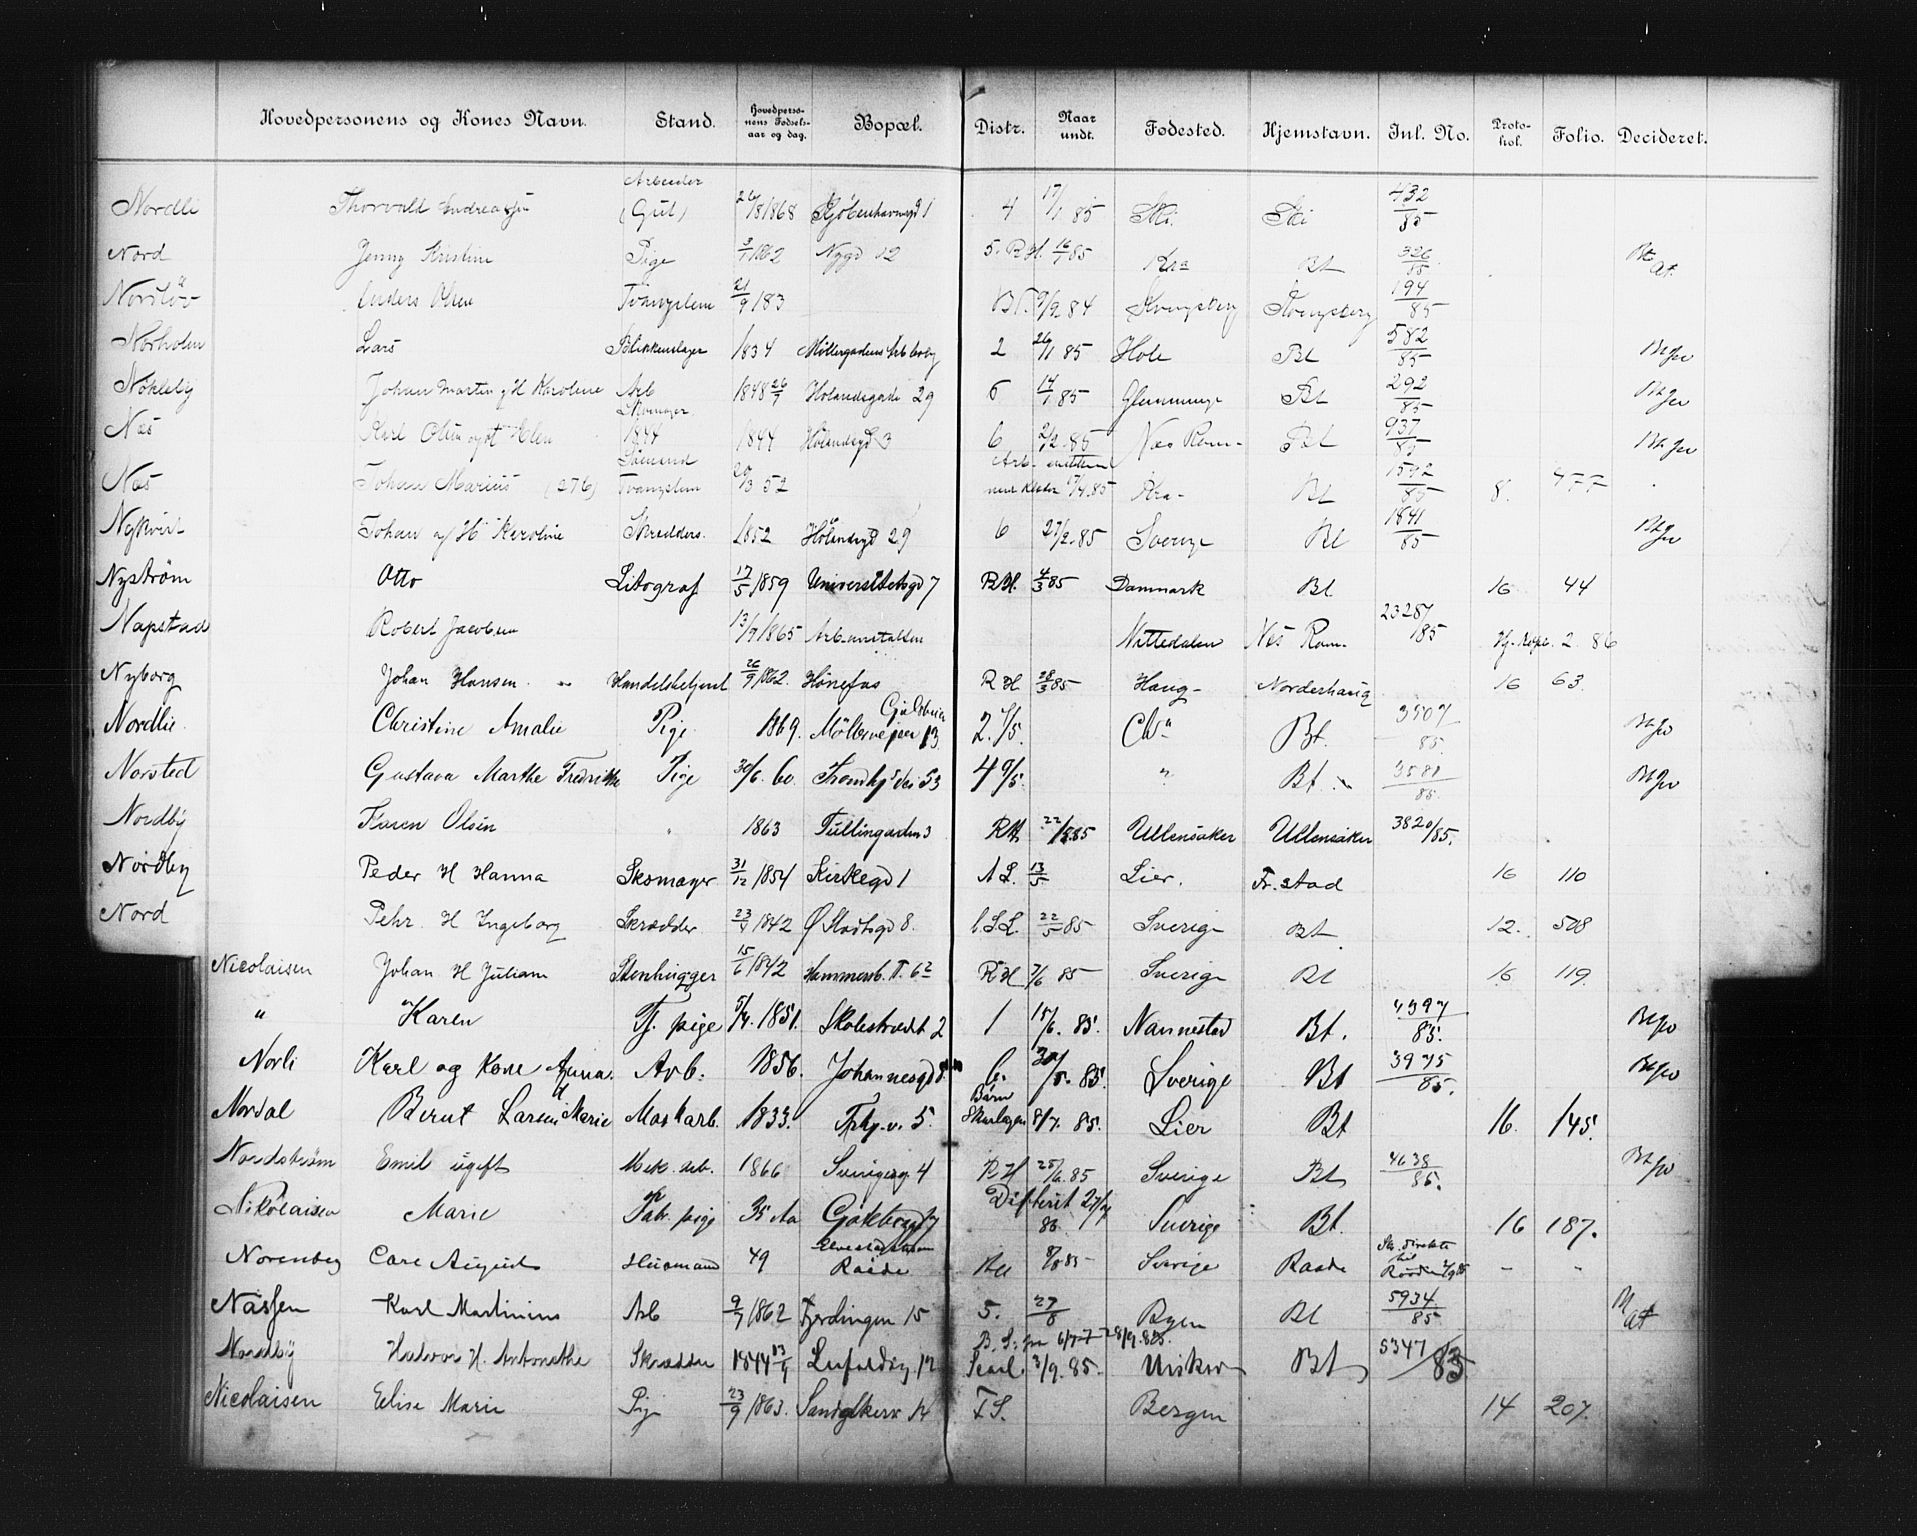 Hovedpersonens og Kones Navn. Stand. Hovedpersonens Fødselsaar og dag. Bopæl. Distr. Naar undt. Fødested. Hjemstavn. Inl. No. Protokol. Folio. Decideret.
Nordli Thorvald Andreasen Arbeider (Gut) 26/8 1868 Kjøbenhavngd 1 4 17/1 85 Ski. Ski 432/85
Nord Jenny Kristine Pige 3/1 1862 Nygd 12 5. R.H. 16/1 85 Kra Bt 326/85
Anders Olsen Tvangslem 21/9 183 9/2 84 Kongsberg Kongsberg 194/85
Norholm Lars Blikkenslager 1834 2 26/1 85 Hole Bt 582/85
Nøkleby Johan Martin og H Karoline Arb 1848 26/7 Holandsgade 29 6 14/1 85 Bt 292/85
Næs Karl Olsen Skomager 1844 1844 Hølandsgd 3 6 2/2. 85 Næs Rom- Bt 937/85
Næs Johan Marius (276) Sømand Tvangslem 20/3 52 Kra- Bt 1592/85 8. 477
Nykvist Johan og H Karoline Skrædders. 1852 Hølandsgd 29 6 27/2. 85 Sverige Bt 1841/85
Nyström Otto Litograf 17/5 1859 Universitetsgd 7 R.H. 4/3 85 Danmark Bt 16 44
Napstad Robert Jacobsen 13/9 1865 Arb.anstalten Nittedalen Næs Rom- 23287/85 2 86
Nyborg Johan Hansen Handelsbetjent 26/9 1862. Hønefos R H. 28/3 85 Haug- Norderhaug 16 63
Nordlie Christine Amalie Pige 1869. Möllerveien 13 2. 1/5. Chra Bt. 3507/85
Norsted Gustava Marthe Fredrikke Pige 30/6. 60. Trondhj's vei 53 4 9/5. " Bt 3581/85
Nordby Karen Olsen " 1863 Tullingaden 3 RH. 22/5 85 Ullensaker Ullensaker 3820/85.
Nordby Peder H Hanna Skomager 31/12 1854 Kirkegd 1 A L. 13/5 Lier. Fr.stad 16 110
Nord Pehr H Ingeborg Skrædder 23/4 1842 Ø Slotsgd 8. C.S.L. 22/5 85 Sverige Bt 12. 508
Nicolaisen Johan H Juliane Stenhugger 15/6 1842 Hammersb. T. 62 R H 3/6 85 Sverige Bt 16 119.
" Karen Tj. pige 5/4. 1851. Skolestrædet 2 1 15/6. 85. Nannestad Bt. 4397/85.
Norli Karl og kone Anna. Arb. 1856. Johannesgd 8 6. 30/5. 85. Sverige Bt 3975/85.
Nordal Berut Larsen H Marie Maskarb. 1833. Trhj.v. 5. Børn Skarlagen 8/7. 85. Lier Bt 16. 145.
Nordstrøm Emil ugift Mek. arb. 1866 Sverigesg. 4 R H 25/6.85 Sverige Bt 4638/85.
Nikolaisen Marie Fab. pige 35 Aa Göteborggd 7 Difterit 27/7 85 Sverige Bt. 16 187.
Norenberg Carl August Husmand 49 Raade 8/8 85 Sverige Raade Sk. direkte til Raade - -
Nassen Karl Martinius Arb 9/7 1862 Fjerdingen 15 5. 27/8 Byen Bt 5934/85
Nordby Halvor H. Antonethe Skrædder 1844 13/4 12 Scarl. 3/9. 85. Bt 5347/85
Nicolaisen Elise Marie Pige 23/9 1863. 14 F S. Bergen 14 207.